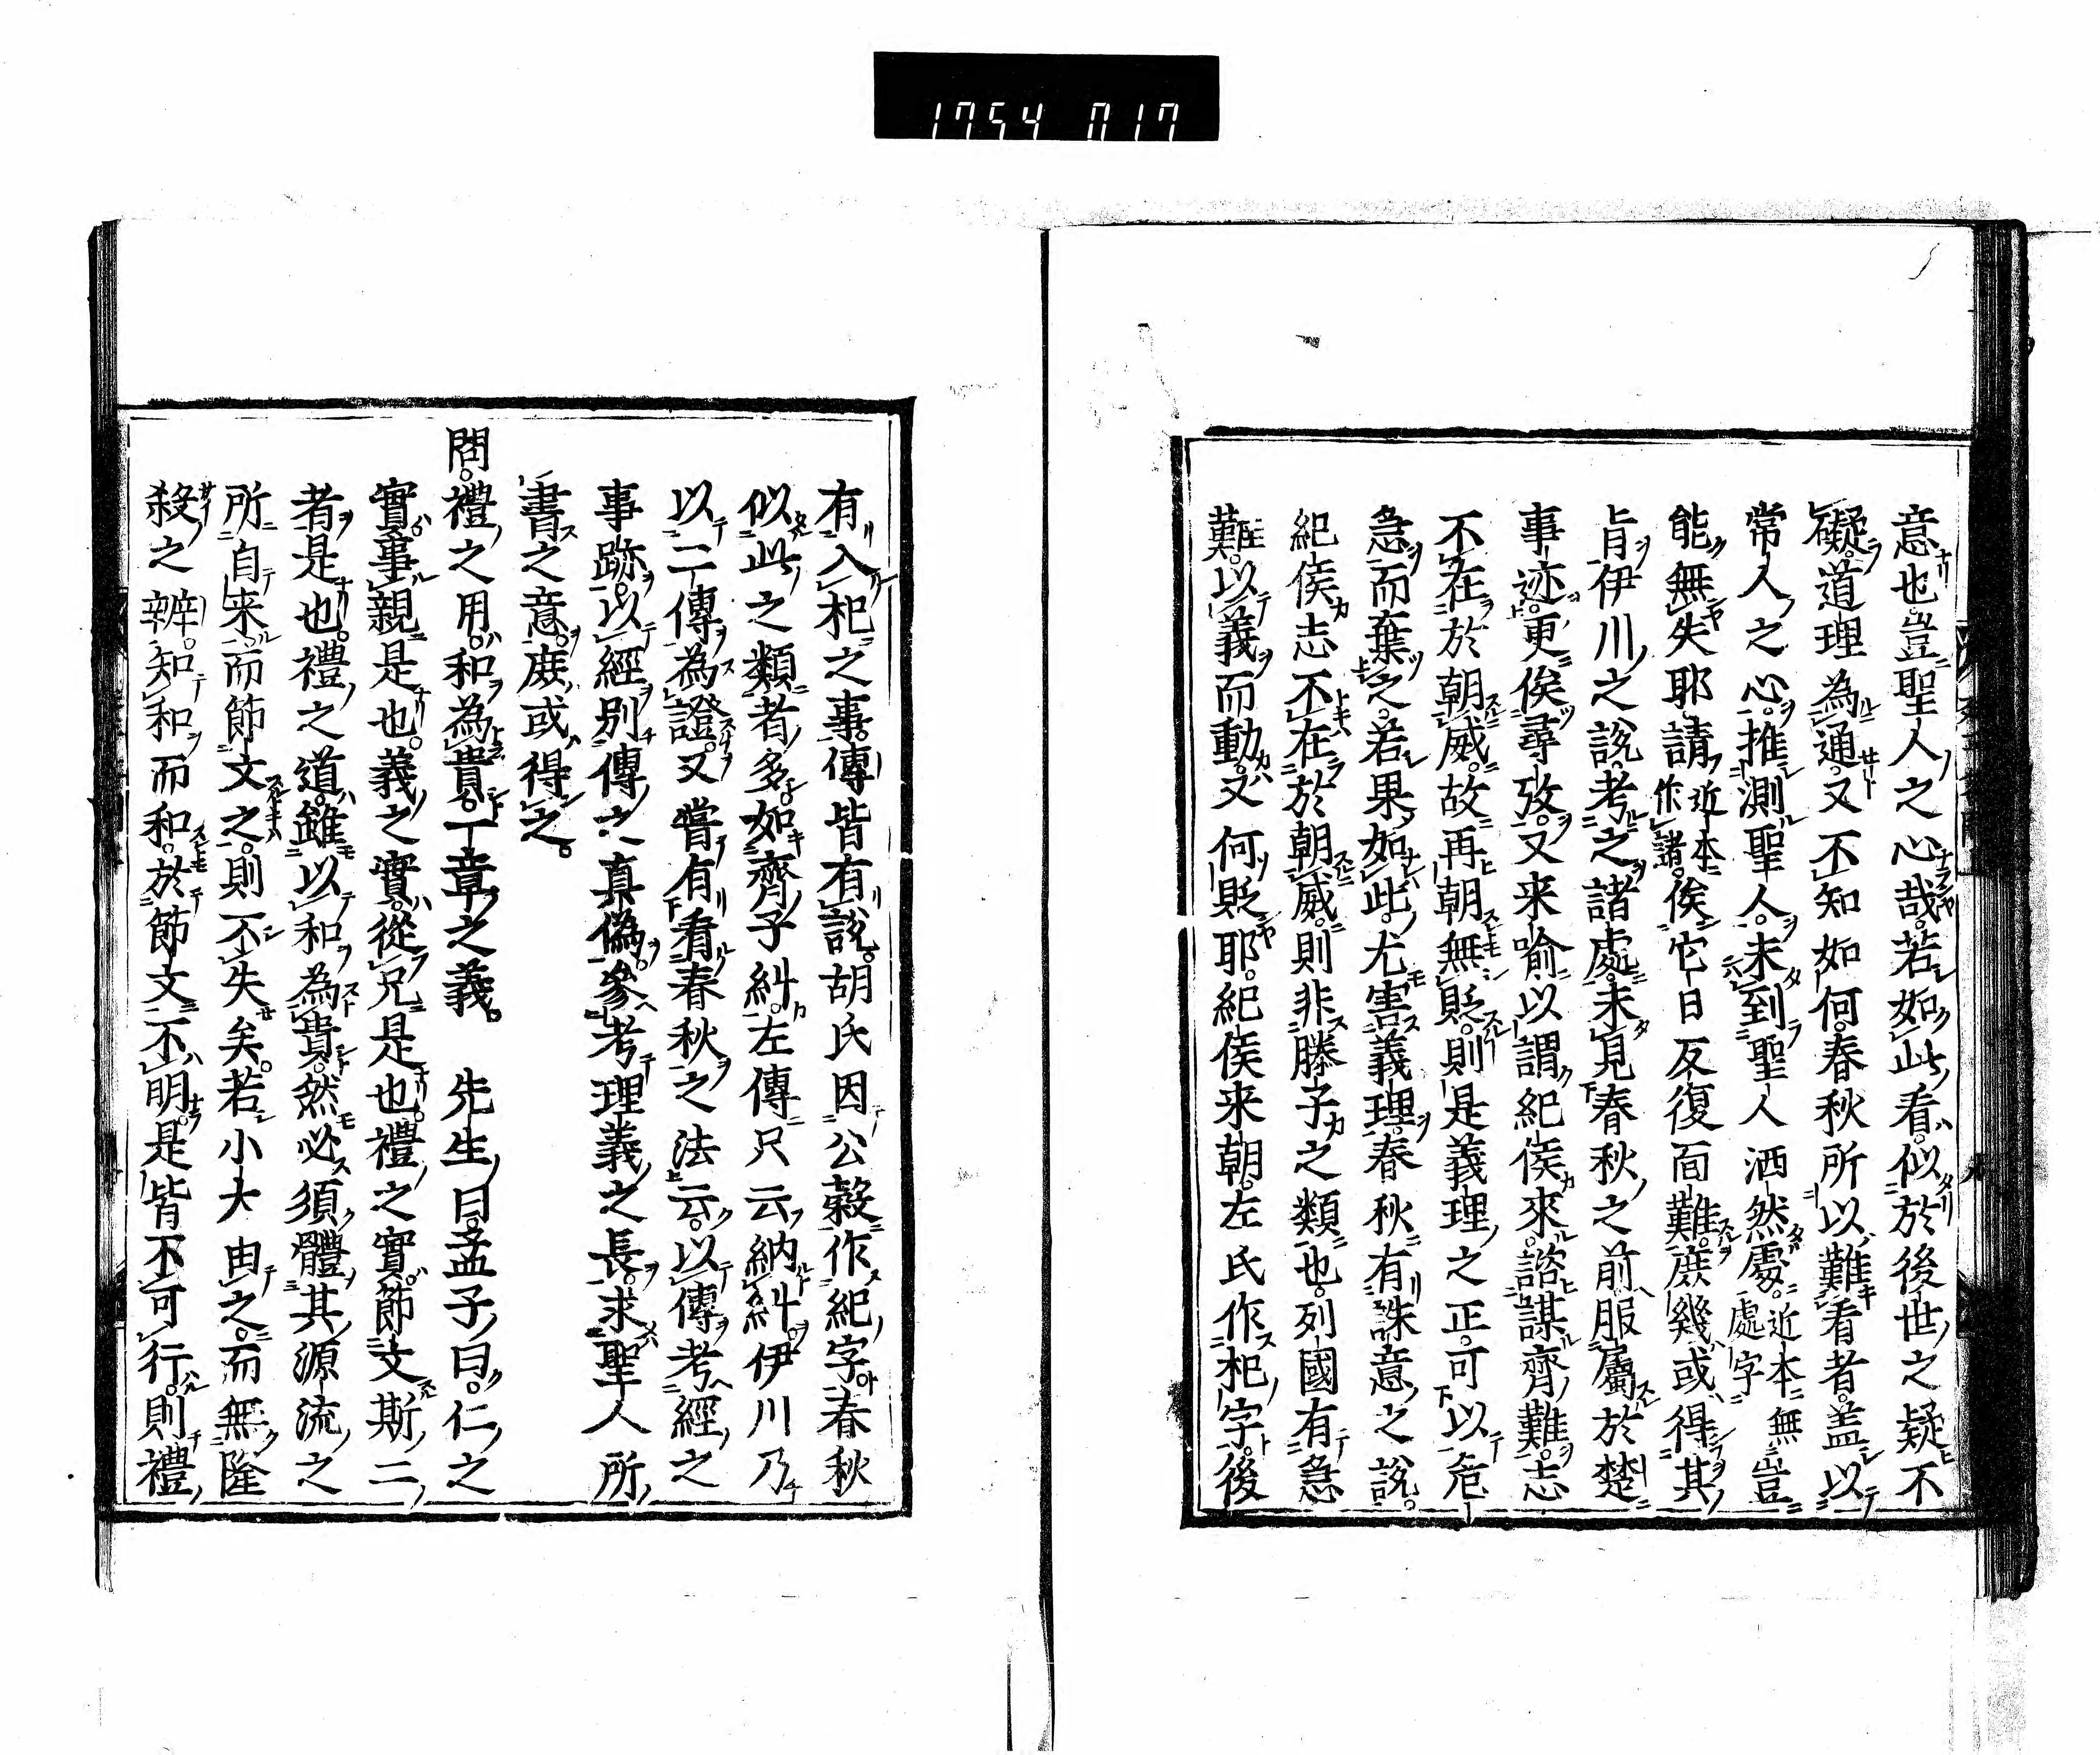 1754 017
意也。豈聖人之心哉。若如此看。似於後世之疑不
礙。道理為通。又不知如何。春秋所以難看者。盖以
常人之心。推測聖人。未到聖人洒然處。近本無處字豈
能無失耶。請近本作諸。俟它日反復面難。庶幾或得其
旨。伊川之說。考之諸處。未見春秋之前。服屬於楚
事迹。更俟尋攷。又来喻以謂紀侯來。諮謀齊難。志
不在於朝威。故再朝無貶。則是義理之正。可以危
急而棄之。若果如此。尤害義理。春秋有誅意之說。
紀侯志不在於朝威。則非滕子之類也。列國有急
難。以義而動。又何貶耶。紀侯来朝。左氏作杞字。後
有入杞之事。傳皆有說。胡氏因公穀作紀字。春秋
似此之類者多。如齊子糾。左傳只云納糾。伊川乃
以二傳為證。又嘗有看春秋之法云。以傳考經之
事跡。以經別傳之真偽。參考理義之長。求聖人所
書之意。庶或得之。
問。禮之用。和為貴。一章之義。 先生曰。孟子曰。仁之
實。事親是也。義之實。從兄是也。禮之實。節文斯二
者是也。禮之道。雖以和為貴。然必須體其源流之
所自来。而節文之。則不失矣。若小大由之。而無隆
殺之辨。知和而和。於節文不明。是皆不可行。則禮